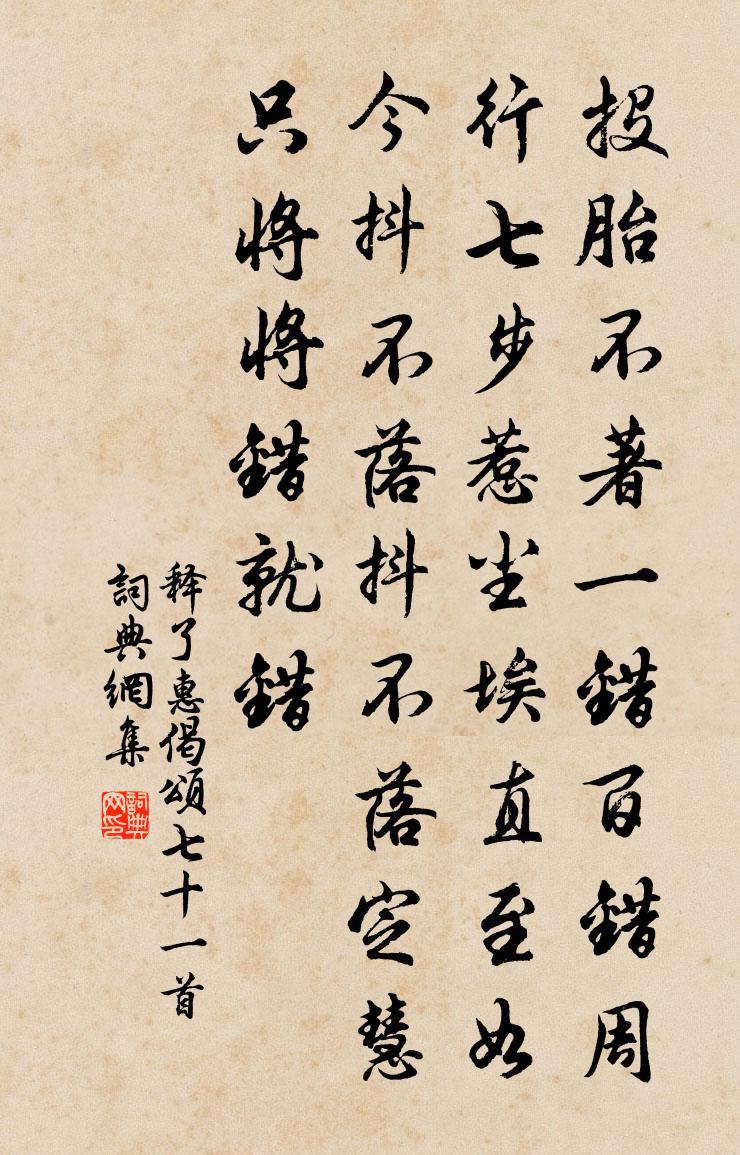 投胎不著一錯百錯周
行七步惹尘埃直至如
今抖不落抖不落定慧
只将将錯就錯
释了惠偈頌七十一首
詞典網集
詞典
网印